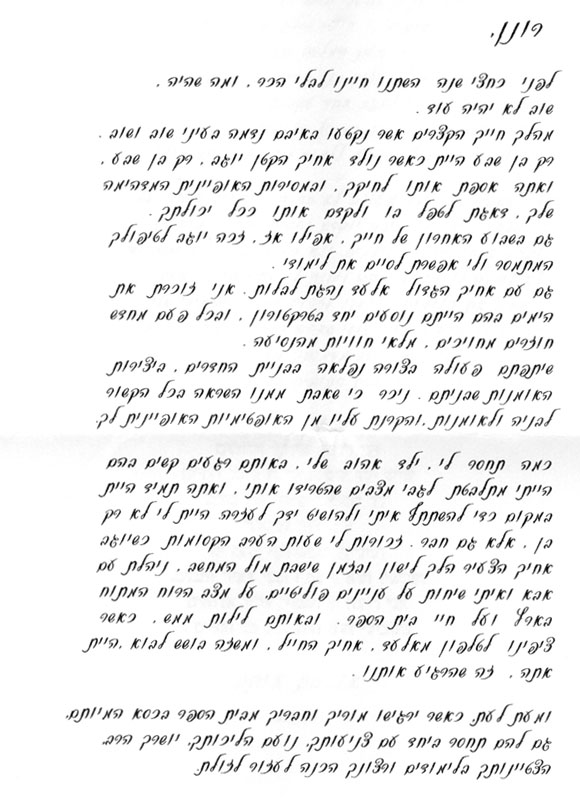 רונן,
לפני כחצי שנה השתנו חיינו לבלי הכר, ומה שהיה,
שוב לא יהיה עוד.
מהלך חייך הקצרים אשר נקטעו באיבם נדמה בעיני שוב ושוב.
רק בן שבע היית כאשר נולד אחיך הקטן יוגב, רק בן שבע,
ואתה אספת אותו לחיקך, ובמסירות האופיינית המדהימה
שלך, דאגת לטפל בו ולקדם אותו ככל יכולתך.
גם בשבוע האחרון של חייך, אפילו אז, זכה יוגב לטיפולך
המתמסר ולי אפשרת לסיים את לימודי.
גם עם אחיך הגדול אלעד נהגת לבלות. אני זוכרת את
הימים בהם הייתם נוסעים יחד בטרקטורון, ובכל פעם מחדש
חוזרים מחויכים, מלאי חוויות מהנסיעה.
שיתפתם פעולה בצורה נפלאה בבניית החדרים, ביצירות
האומנות שבניתם. ניכר כי שאבת ממנו השראה בכל הקשור
לבניה ולאומנות, והקרנת עליו מן האופטימיות האופיינית לך.
כמה תחסר לי, ילד אהוב שלי, באותם רגעים קשים בהם
הייתי מתלבטת לגבי מצבים שהטרידו אותי, ואתה תמיד היית
במקום כדי להשתתף איתי ולהושיט ידך לעזרה. היית לי לא רק
בן, אלא גם חבר. זכורות לי שעות הערב הקסומות כשיוגב
אחיך הצעיר הלך לישון ובזמן שישבת מול המחשב, ניהלת עם
אבא ואיתי שיחות על עניינים פוליטיים, על מצב הרוח המתוח
בארץ ועל חיי בית הספר. ובאותם לילות ממש, כאשר
ציפינו לטלפון מאלעד, אחיך החייל, ומשזה בושש לבוא, היית
אתה, זה שהרגיע אותנו.
ומעת לעת, כאשר ירגישו מוריך וחבריך מבית הספר בכסא המיותם,
גם להם תחסר ביחד עם צניעותך, נועם הליכותך, יושרך הרב,
הצטיינותך בלימודים ורצונך הכנה לעזור לזולת.